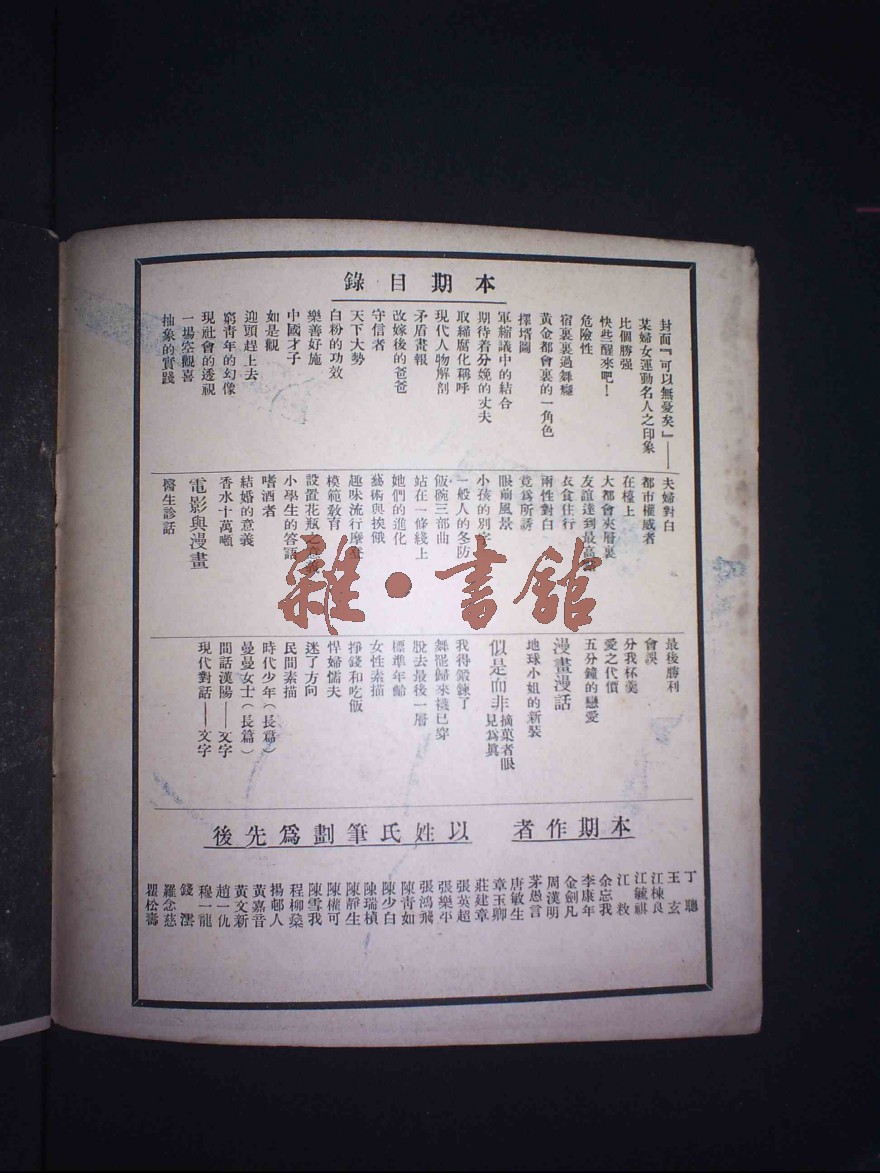 本期目錄
封面『可以無憂矣』——
某婦女運動名人之印象
比個勝强
快些醒來吧！
危險性
宿裏裏過舞癮
黃金都會裏的一角色
擇壻圖
軍縮議中的結合
期待着分娩的丈夫
取締腐化稱呼
現代人物解剖
矛盾畫報
改嫁後的爸爸
守信者
天下大勢
白粉的功效
樂善好施
中國才子
如是觀
迎頭趕上去
窮青年的幻像
現社會的透視
一場空觀喜
抽象的實踐
夫婦對白
都市權威者
在檯上
大都會夾層裏
友誼達到最高
衣食住行
兩性對白
竟爲所誘
眼前風景
小孩的別字
一般人的冬防
飯碗三部曲
站在一條綫上
她們的進化
藝術與挨俄
趣味流行摩登
模範敎育
設置花瓶之
小學生的答語
嗜酒者
結婚的意義
香水十萬噸
電影與漫畫
醫生診話
最後勝利
會誤
分我杯羹
愛之代價
五分鐘的戀愛
漫畫漫話
地球小姐的新裝
似是而非 摘菓者眼見爲眞
我得鍛鍊了
舞罷歸來襪已穿
脫去最後一層
標準年齡
女性素描
掙錢和吃飯
悍婦懦夫
迷了方向
民間素描
時代少年（長篇）
曼曼女士（長篇）
閒話漢陽——文字
現代對話——文字
本期作者 以姓氏筆劃爲先後
丁聰
王玄
江棟良
江毓祺
江敉
余忘我
李康年
金劍凡
周漢明
茅愚言
唐敏生
章玉卿
莊建章
張英超
張樂平
張鴻飛
陳青如
陳少白
陳瑞楨
陳靜生
陳權可
陳雪我
程柳燊
揚邨人
黃嘉音
黃文新
趙一仇
穆一龍
錢澐
羅念慈
瞿松壽
雜·書館